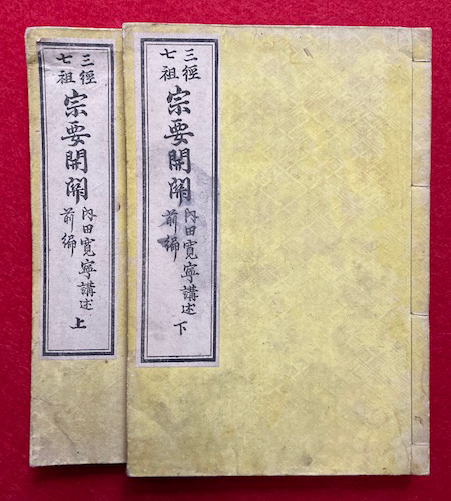 三經
七祖
宗要開闗
内田寛寧講述
前編
下
三經
七祖
宗要開闗
内田寛寧講述
前編
上